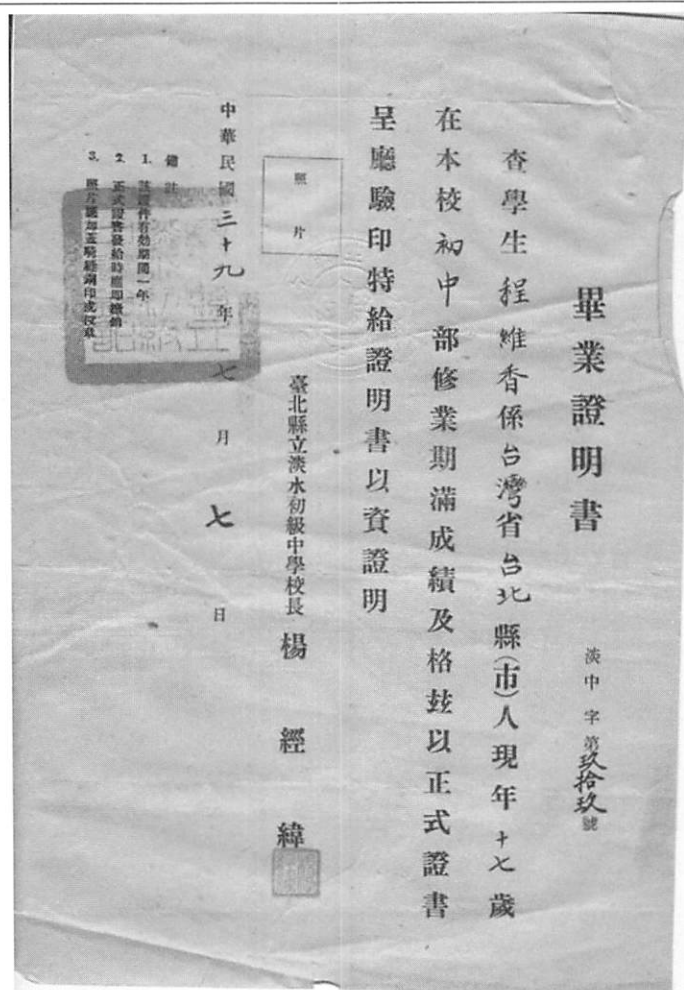 畢業證明書
淡中字第玖拾玖號
查學生程維香係台灣省台北縣(市)人現年十七歲
在本校初中部修業期滿成績及格玆以正式證書
呈廳驗印特給證明書以資證明
照片
臺北縣立淡水初級中學校長楊經緯
中華民國三十九年七月七日
備註
1. 該證件有効期間一年
2. 正式證書發給時應即繳銷
3. 照片騎縫蓋印或校章